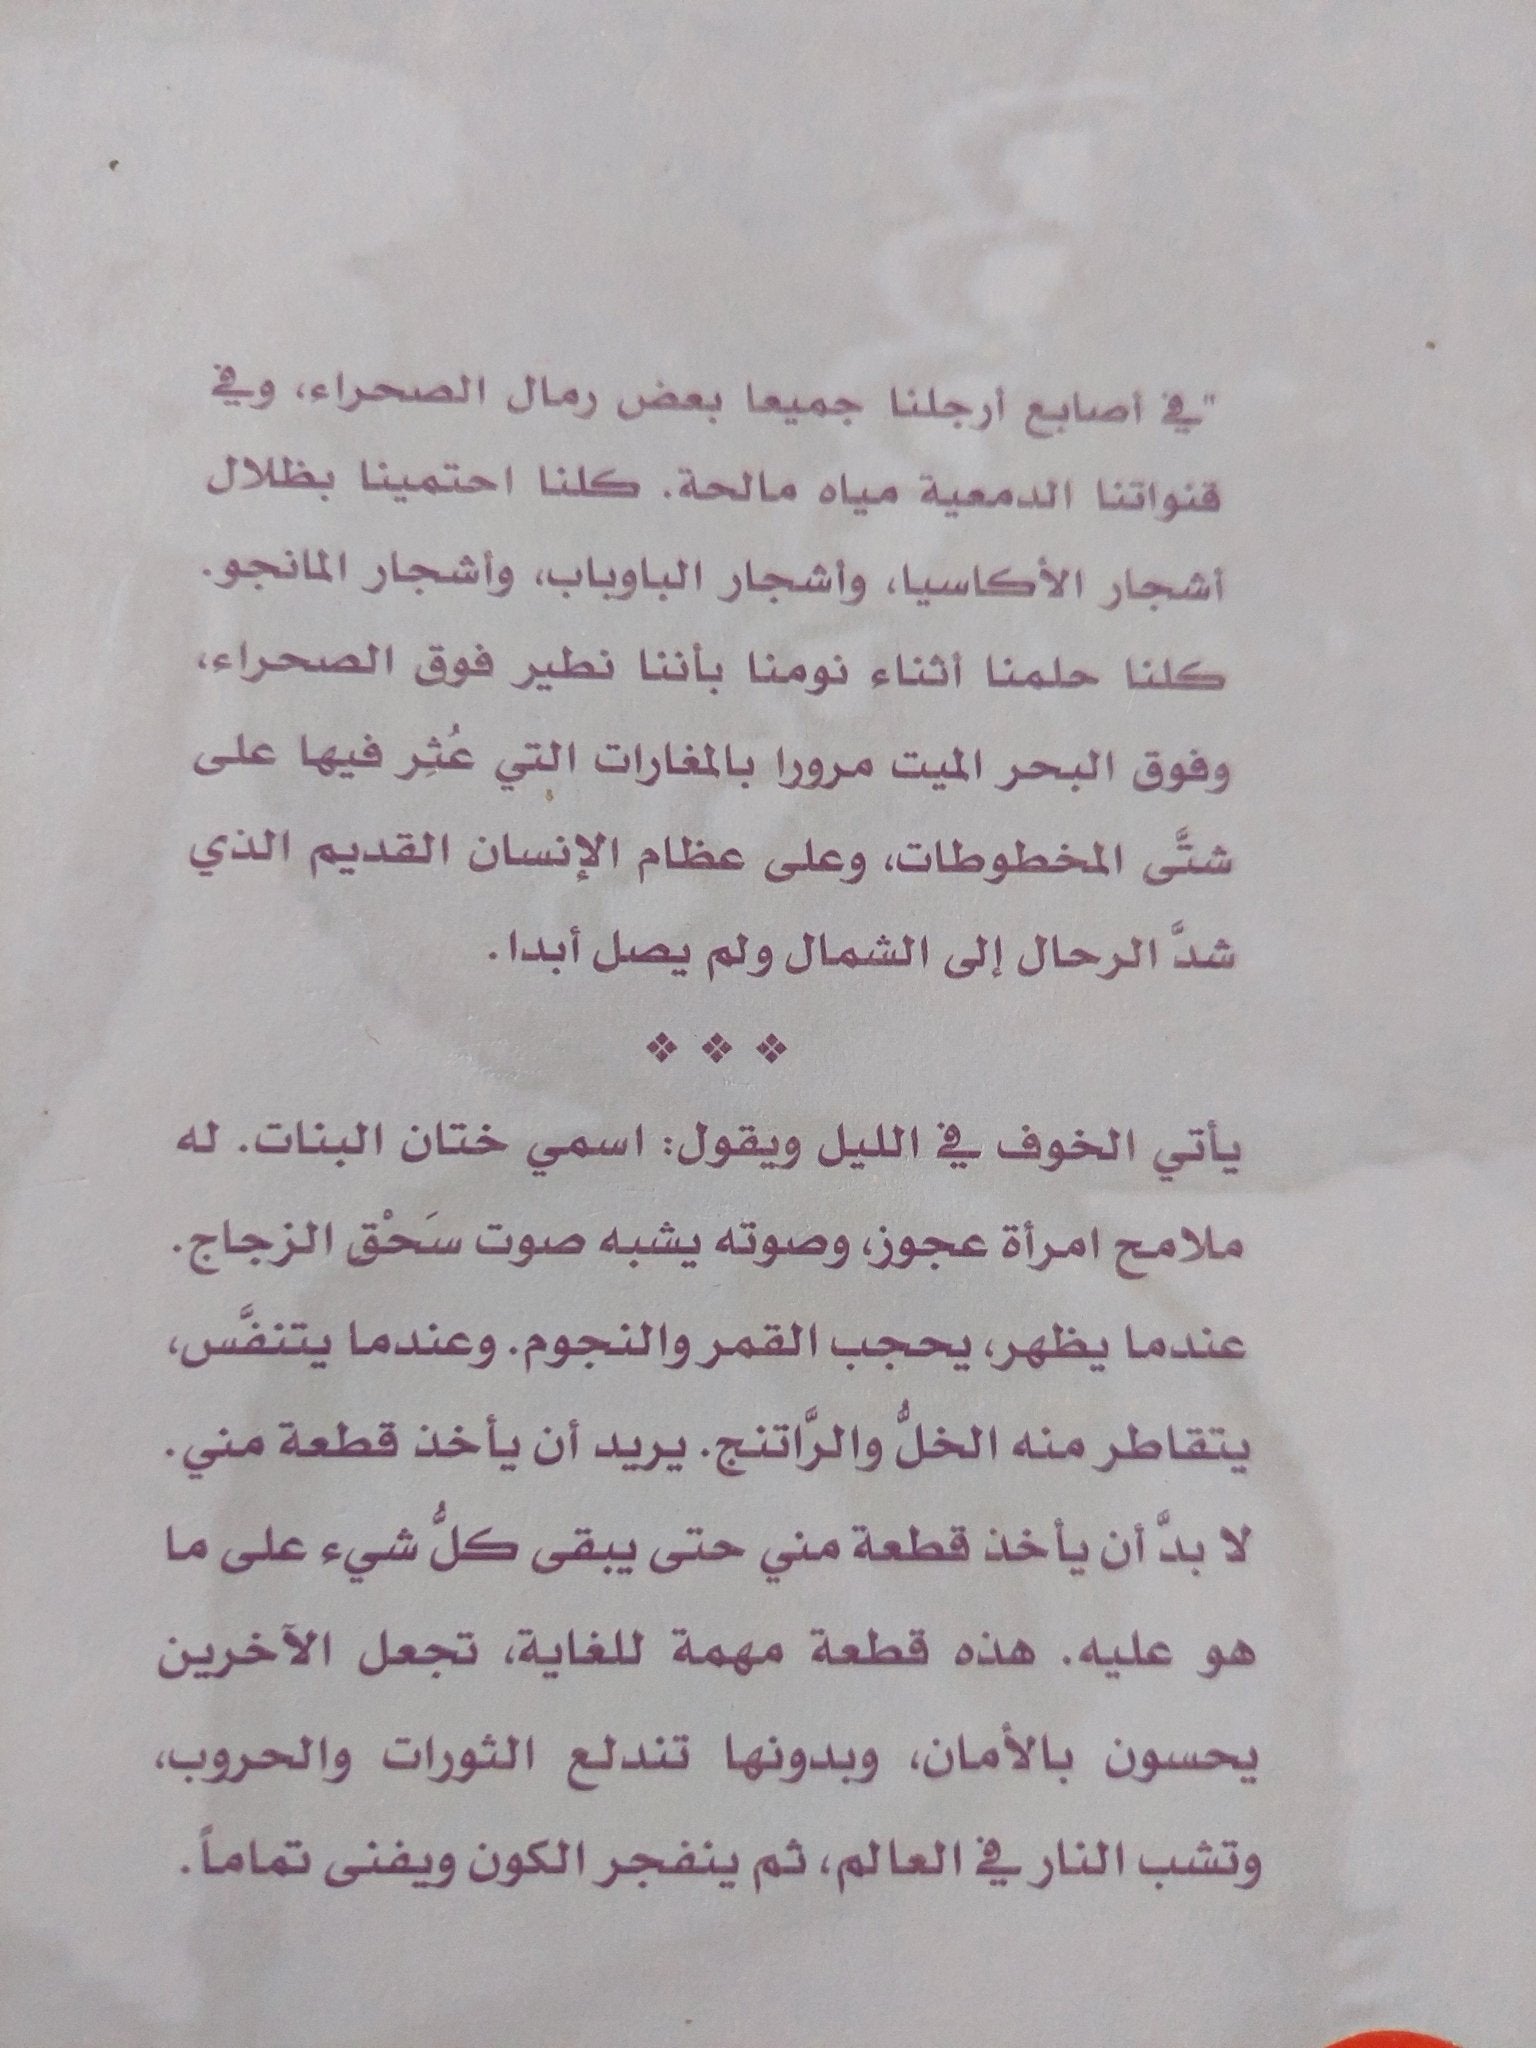 "في أصابع أرجلنا جميعا بعض رمال الصحراء، وفي
قنواتنا الدمعية مياه مالحة. كلنا احتمينا بظلال
أشجار الأكاسيا، وأشجار الباوباب، وأشجار المانجو.
كلنا حلمنا أثناء نومنا بأننا نطير فوق الصحراء،
وفوق البحر الميت مرورا بالمغارات التي عُثِر فيها على
شتَّى المخطوطات، وعلى عظام الإنسان القديم الذي
شدَّ الرحال إلى الشمال ولم يصل أبدا.
❖ ❖ ❖
يأتي الخوف في الليل ويقول: اسمي ختان البنات. له
ملامح امرأة عجوز، وصوته يشبه صوت سَحْق الزجاج.
عندما يظهر، يحجب القمر والنجوم. وعندما يتنفَّس،
يتقاطر منه الخلُّ والرَّاتنج. يريد أن يأخذ قطعة مني.
لا بدَّ أن يأخذ قطعة مني حتى يبقى كلُّ شيء على ما
هو عليه. هذه قطعة مهمة للغاية، تجعل الآخرين
يحسون بالأمان، وبدونها تندلع الثورات والحروب،
وتشب النار في العالم، ثم ينفجر الكون ويفنى تماماً.